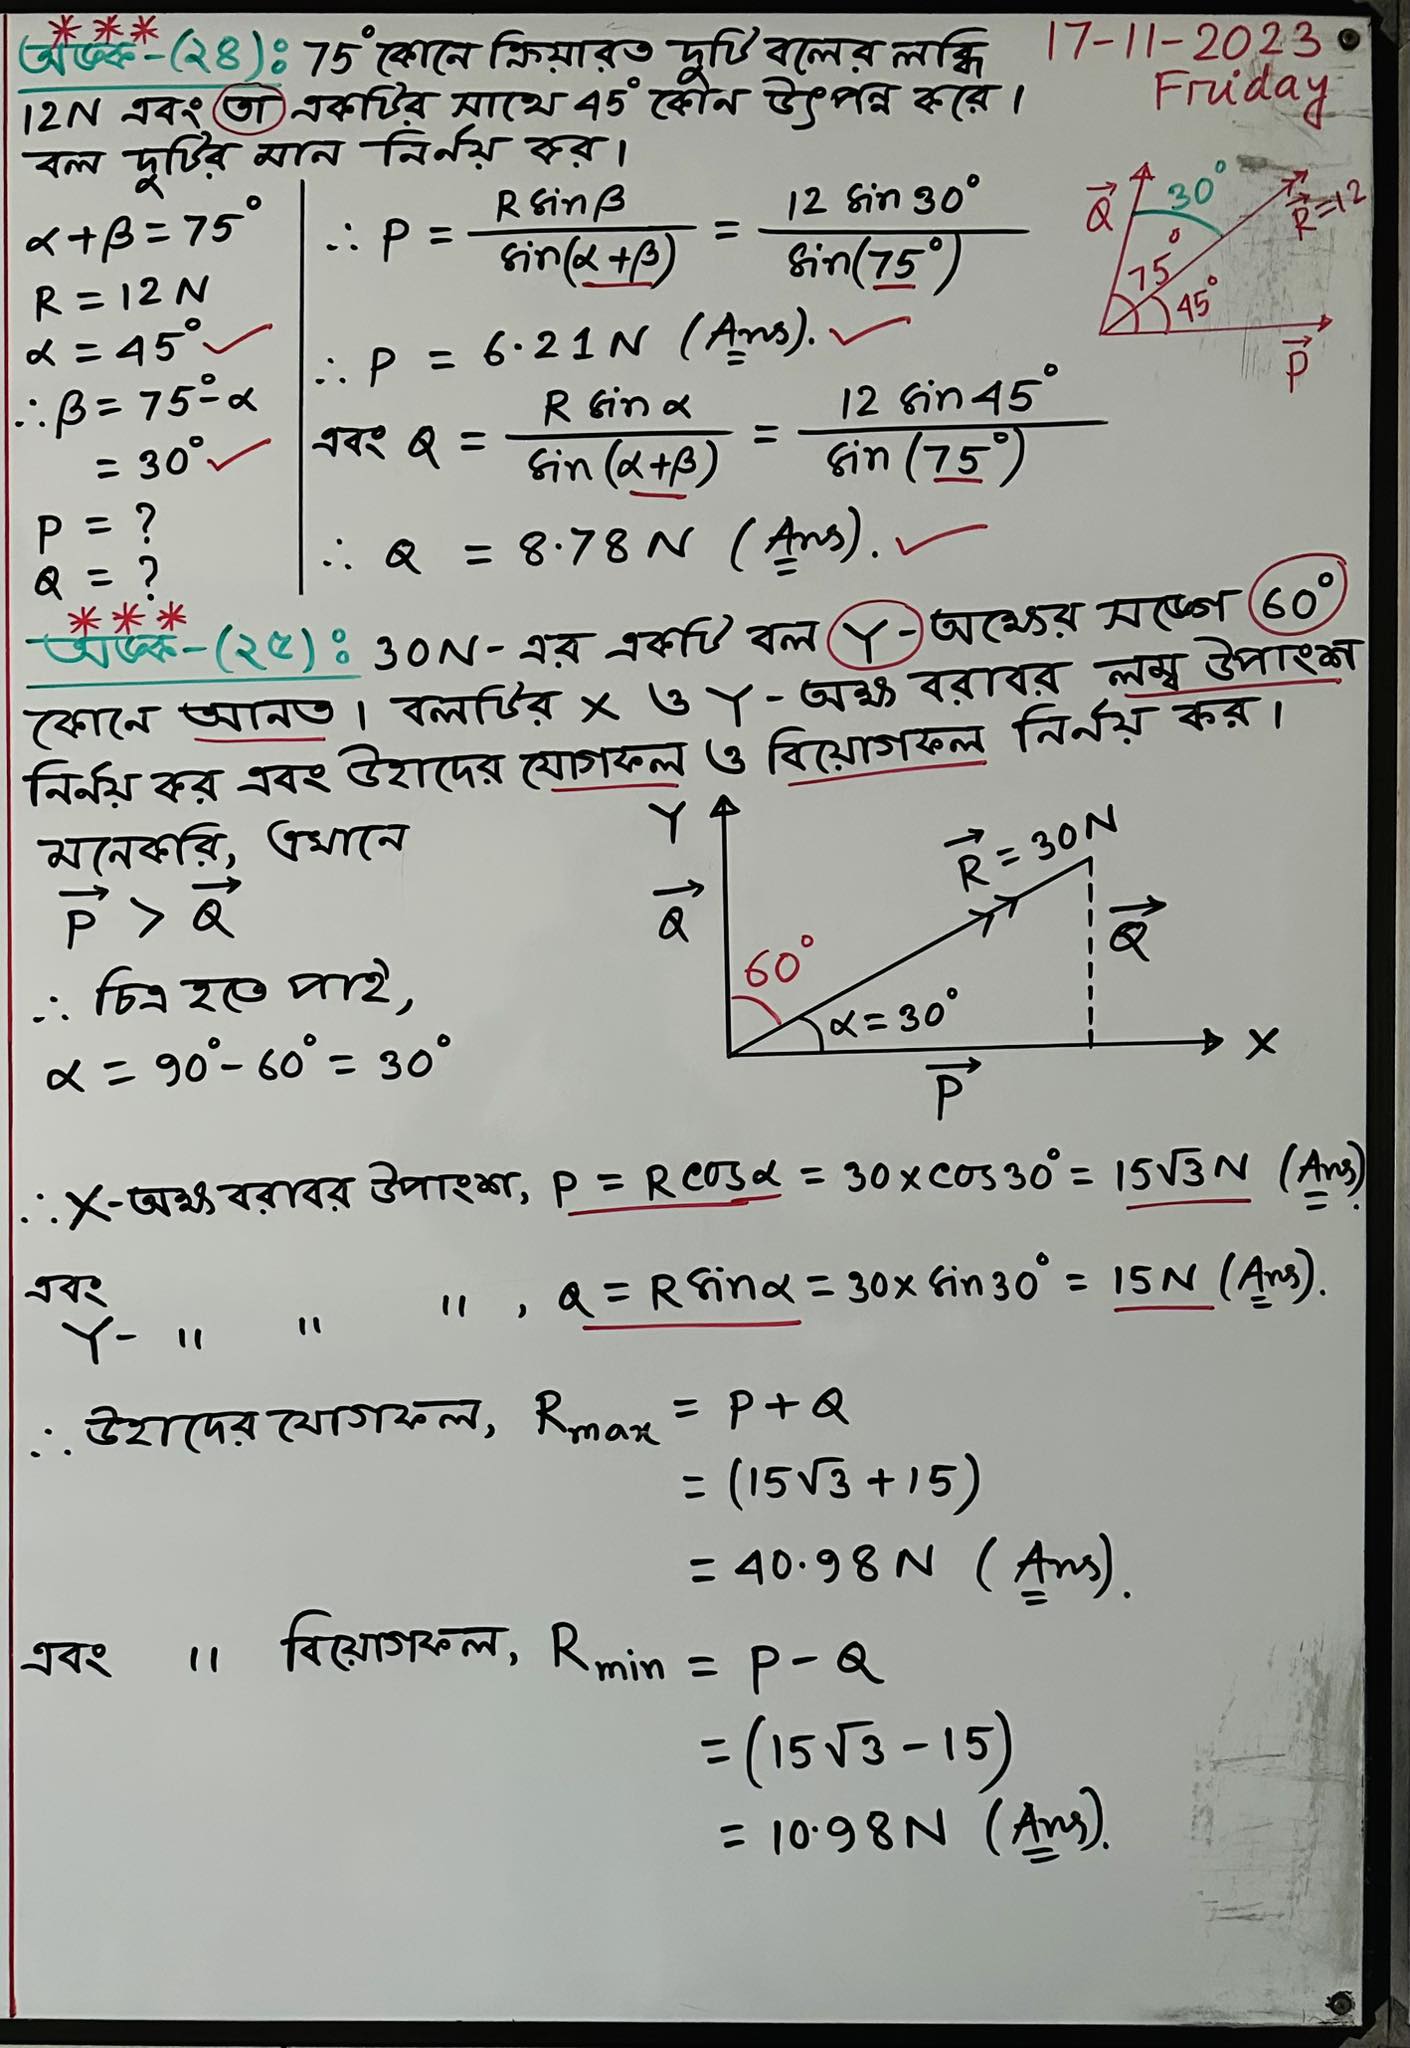 অঙ্ক-(২৪): 75° কোনে ক্রিয়ারত দুটি বলের লব্ধি
12N এবং তা একটির সাথে 45° কোন উৎপন্ন করে।
বল দুটির মান নির্নয় কর।
17-11-2023
Friday
α+β = 75°
R = 12 N
α = 45°
∴ β = 75° - α
= 30°
P = ?
Q = ?
∴ P = R sin β / sin(α+β) = 12 sin 30° / sin(75°)
∴ P = 6.21 N (Ans).
এবং Q = R sin α / sin (α+β) = 12 sin 45° / sin (75°)
∴ Q = 8.78 N (Ans).
Q⃗ 30° R⃗=12
75° 45°
P⃗
অঙ্ক-(২৫): 30N-এর একটি বল Y-অক্ষের সঙ্গে 60°
কোনে আনত। বলটির X ও Y-অক্ষ বরাবর লম্ব উপাংশ
নির্নয় কর এবং উহাদের যোগফল ও বিয়োগফল নির্নয় কর।
মনেকরি, এখানে
P⃗ > Q⃗
∴ চিত্র হতে পাই,
α = 90° - 60° = 30°
Y R⃗ = 30N
Q⃗ Q⃗
60° α = 30°
X
P⃗
∴ X-অক্ষ বরাবর উপাংশ, P = R cos α = 30 x cos 30° = 15√3 N (Ans)
এবং
Y- " " " , Q = R sin α = 30 x sin 30° = 15 N (Ans).
∴ উহাদের যোগফল, Rmax = P + Q
= (15√3 + 15)
= 40.98 N (Ans).
এবং " বিয়োগফল, Rmin = P - Q
= (15√3 - 15)
= 10.98 N (Ans).